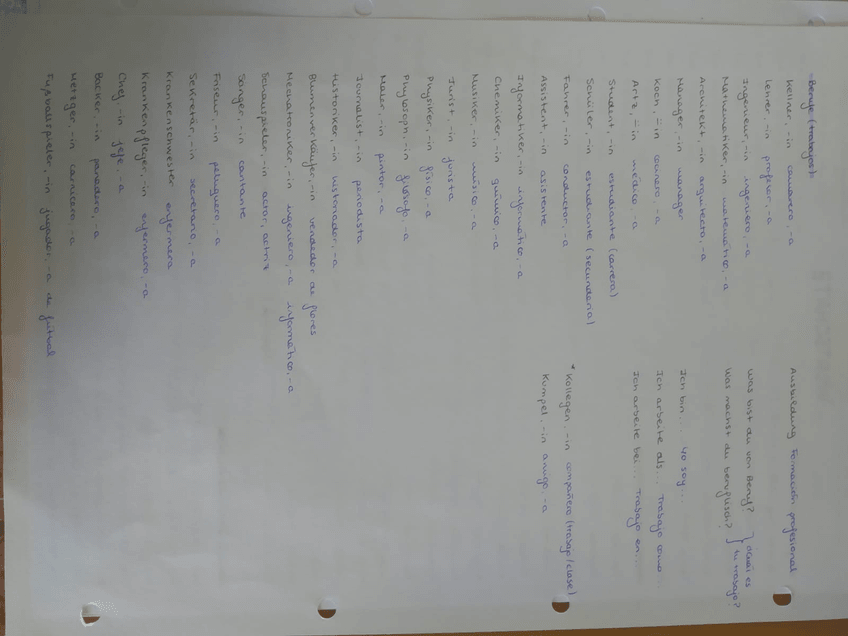 Berufe (trabajos):
Kellner, -in camarero, -a
Lehrer, -in profesor, -a
Ingenieur, -in ingeniero, -a
Mathematiker, -in matemático, -a
Architekt, -in arquitecto, -a
Manager, -in manager
Koch, ¨-in cocinero, -a
Artz, ¨-in médico, -a
Student, -in estudiante (carrera)
Schüler, -in estudiante (secundaria)
Fahrer, -in conductor, -a
Assistent, -in asistente
Informatiker, -in informático, -a
Chemiker, -in químico, -a
Musiker, -in músico, -a
Jurist, -in jurista
Physiker, -in físico, -a
Phylosoph, -in filósofo, -a
Maler, -in pintor, -a
Journalist, -in periodista
Historiker, -in historiador, -a
Blumenverkäufer, -in vendedor de flores
Mechatroniker, -in ingeniero, -a informático, -a
Schauspieler, -in actor, actriz
Sänger, -in cantante
Friseur, -in peluquero, -a
Sekretär, -in secretario, -a
Krankenschwester enfermera
Krankenpfleger, -in enfermero, -a
Chef, -in jefe, -a
Bäcker, -in panadero, -a
Metzger, -in carnicero, -a
Fußballspieler, -in jugador, -a de fútbol
Ausbildung Formación profesional
Was bist du von Beruf? ¿Cuál es
Was machst du beruflich? tu trabajo?
Ich bin... Yo soy...
Ich arbeite als... Trabajo como...
Ich arbeite bei... Trabajo en...
* Kollegen, -in compañero (trabajo/clase)
Kumpel, -in amigo, -a